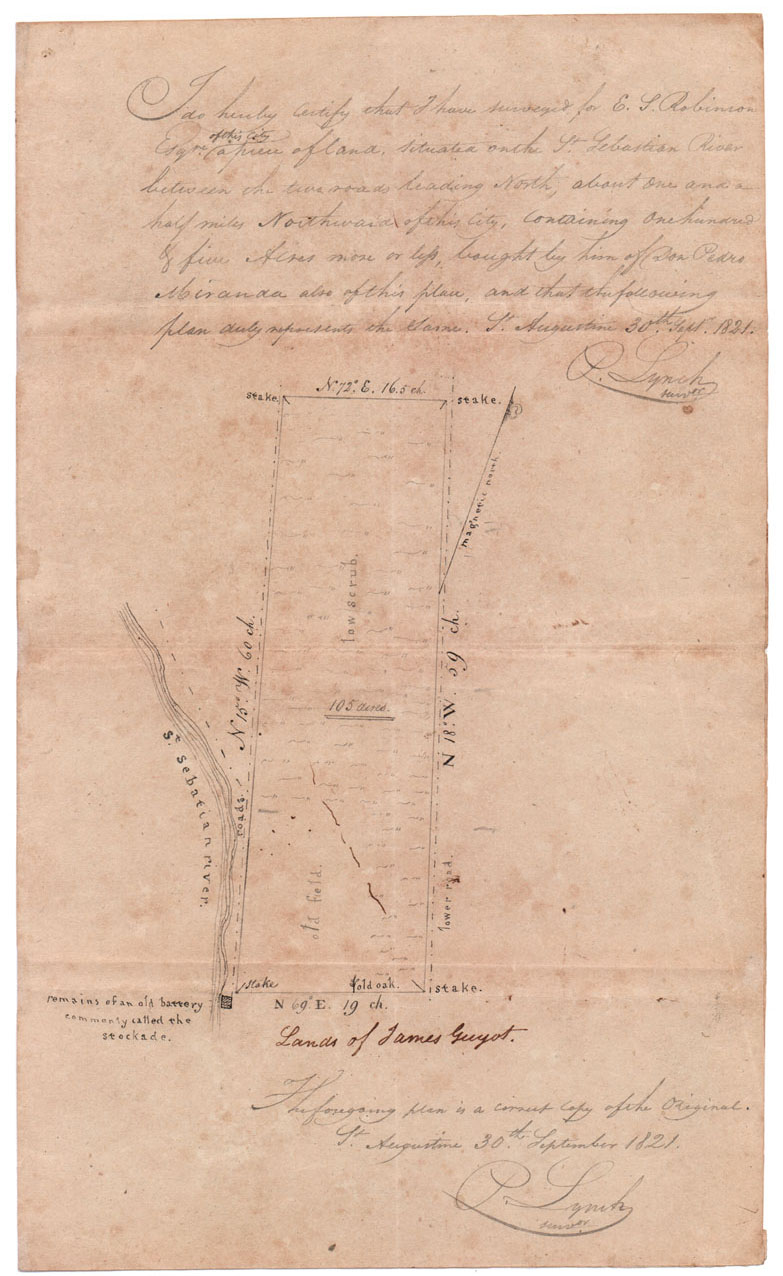 I do hereby Certify that I have surveyed for E. S. Robinson
Esqre of this City a piece of land, situated on the St. Sebastian River
between the two roads leading North, about one and a
half miles Northward of this City, Containing One hundred
& five Acres more or less, bought by him of Don Pedro
Miranda also of this place, and that the following
plan duly represents the Same. St. Augustine 30th Septr. 1821.
P. Lynch
survor
N. 72° E. 16.5 ch.
stake.
stake.
magnetic north
low scrub.
N 15° W. 60 ch.
N 18° W. 59 ch.
105 acres.
St. Sebatian river.
roads.
old field.
lower road.
stake
old oak.
stake.
remains of an old battery
commonly called the
stockade.
N 69° E. 19 ch.
Lands of James Guyot.
The foregoing plan is a correct Copy of the Original.
St. Augustine 30th September 1821.
P. Lynch
survor